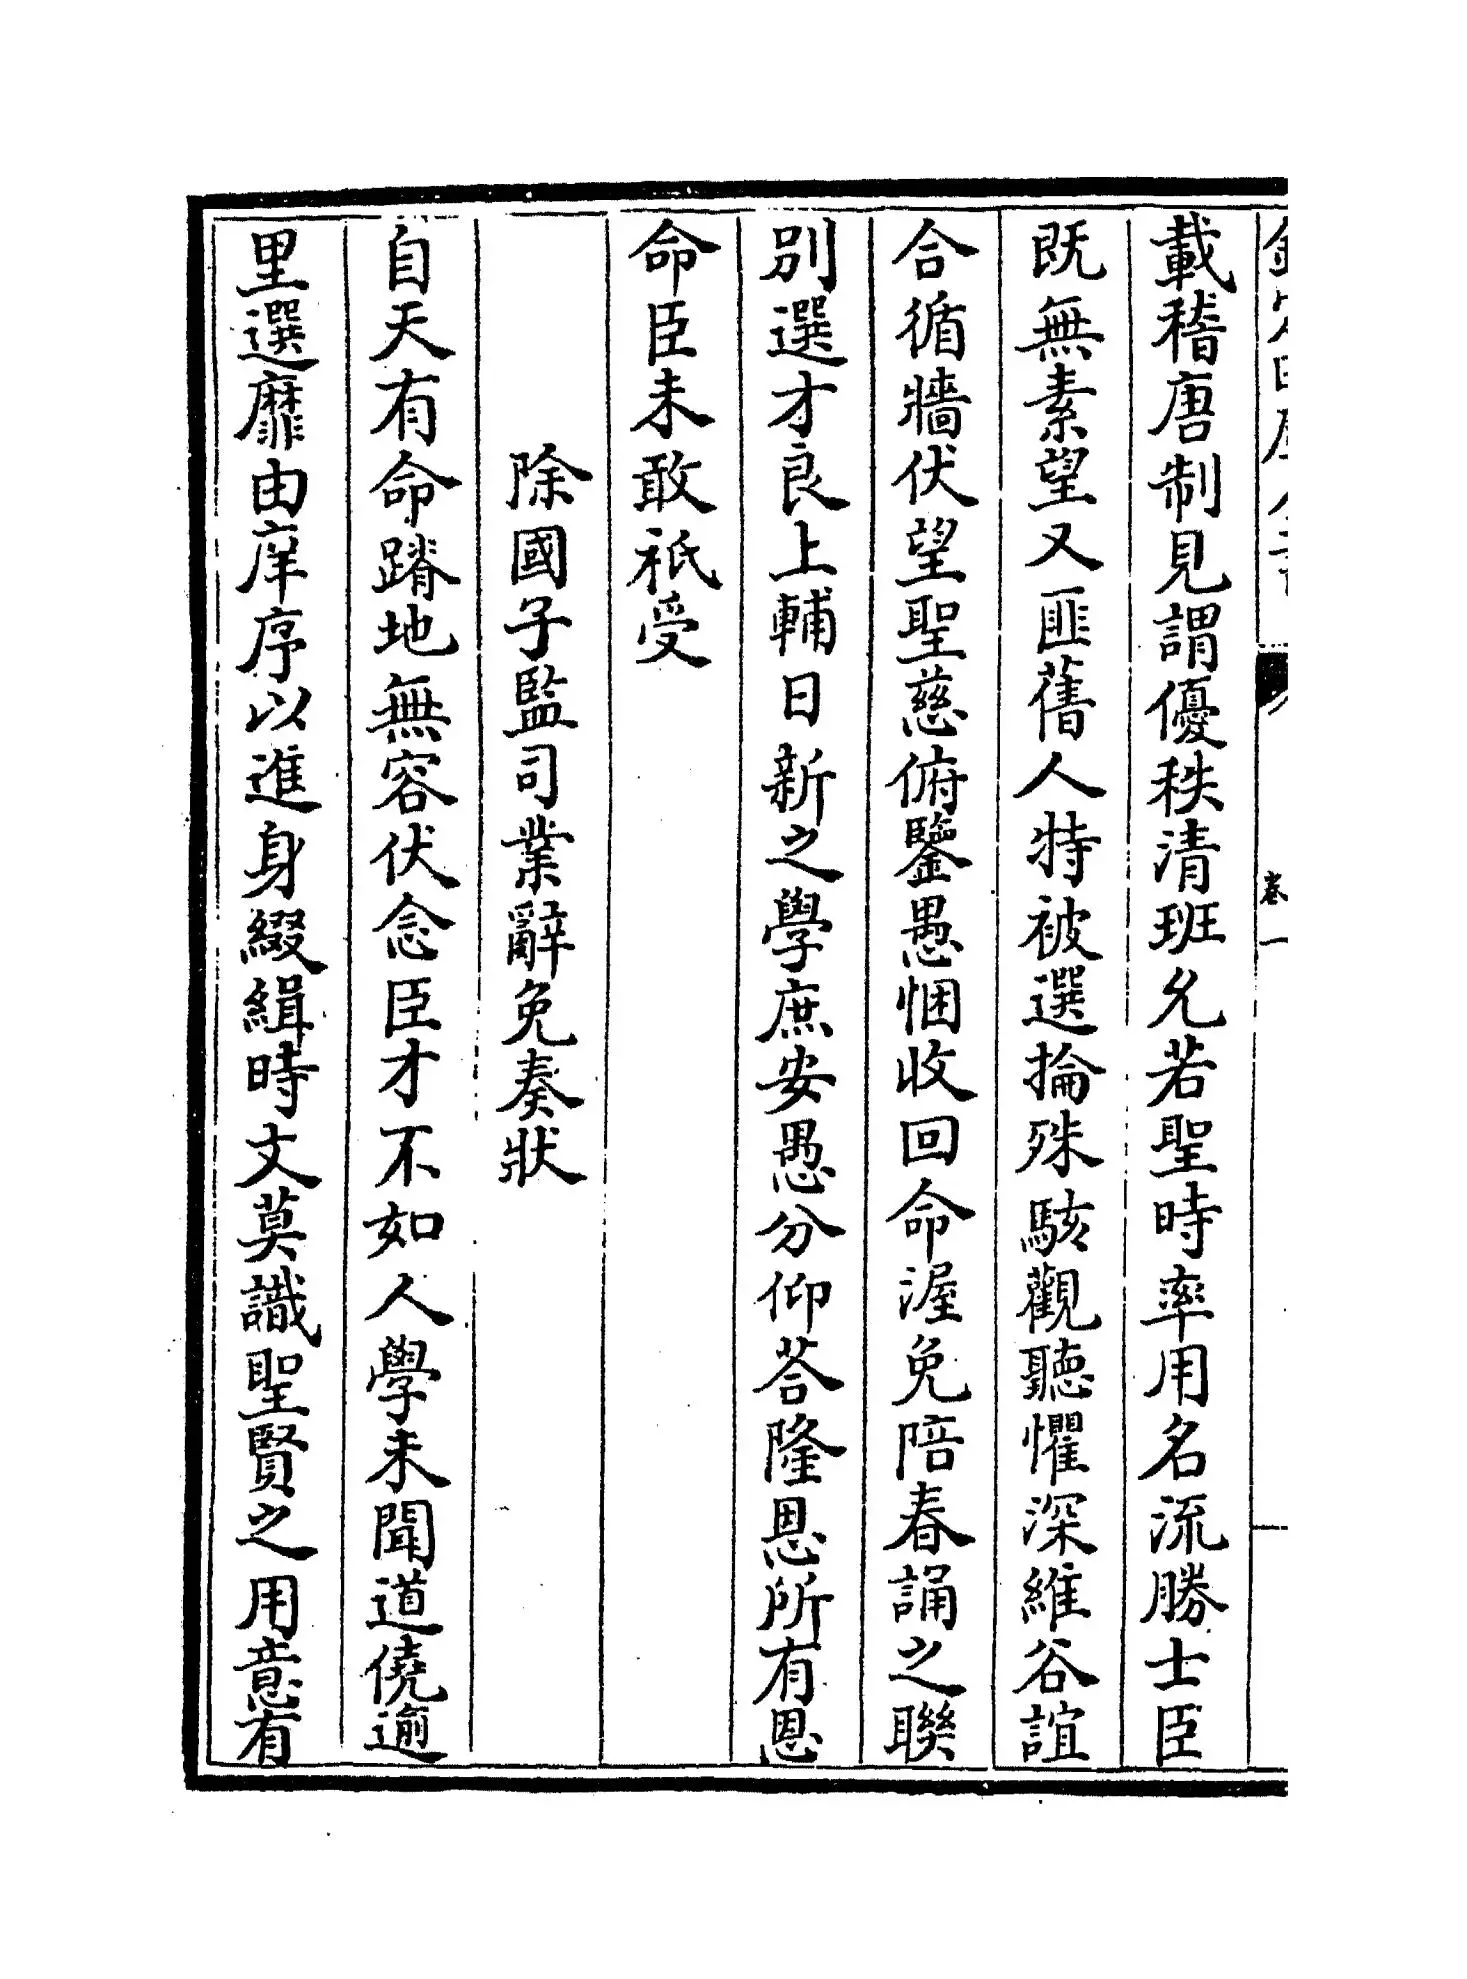 載稽唐制見謂優秩清班允若聖時率用名流勝士臣
既無素望又匪舊人特被選掄殊駭觀聽懼深維谷誼
合循牆伏望聖慈俯鑒愚悃收回命渥免陪春誦之聯
別選才良上輔日新之學庶安愚分仰荅隆恩所有恩
命臣未敢祗受
除國子監司業辭免奏狀
自天有命蹐地無容伏念臣才不如人學未聞道僥逾
里選靡由庠序以進身綴緝時文莫識聖賢之用意有
卷一